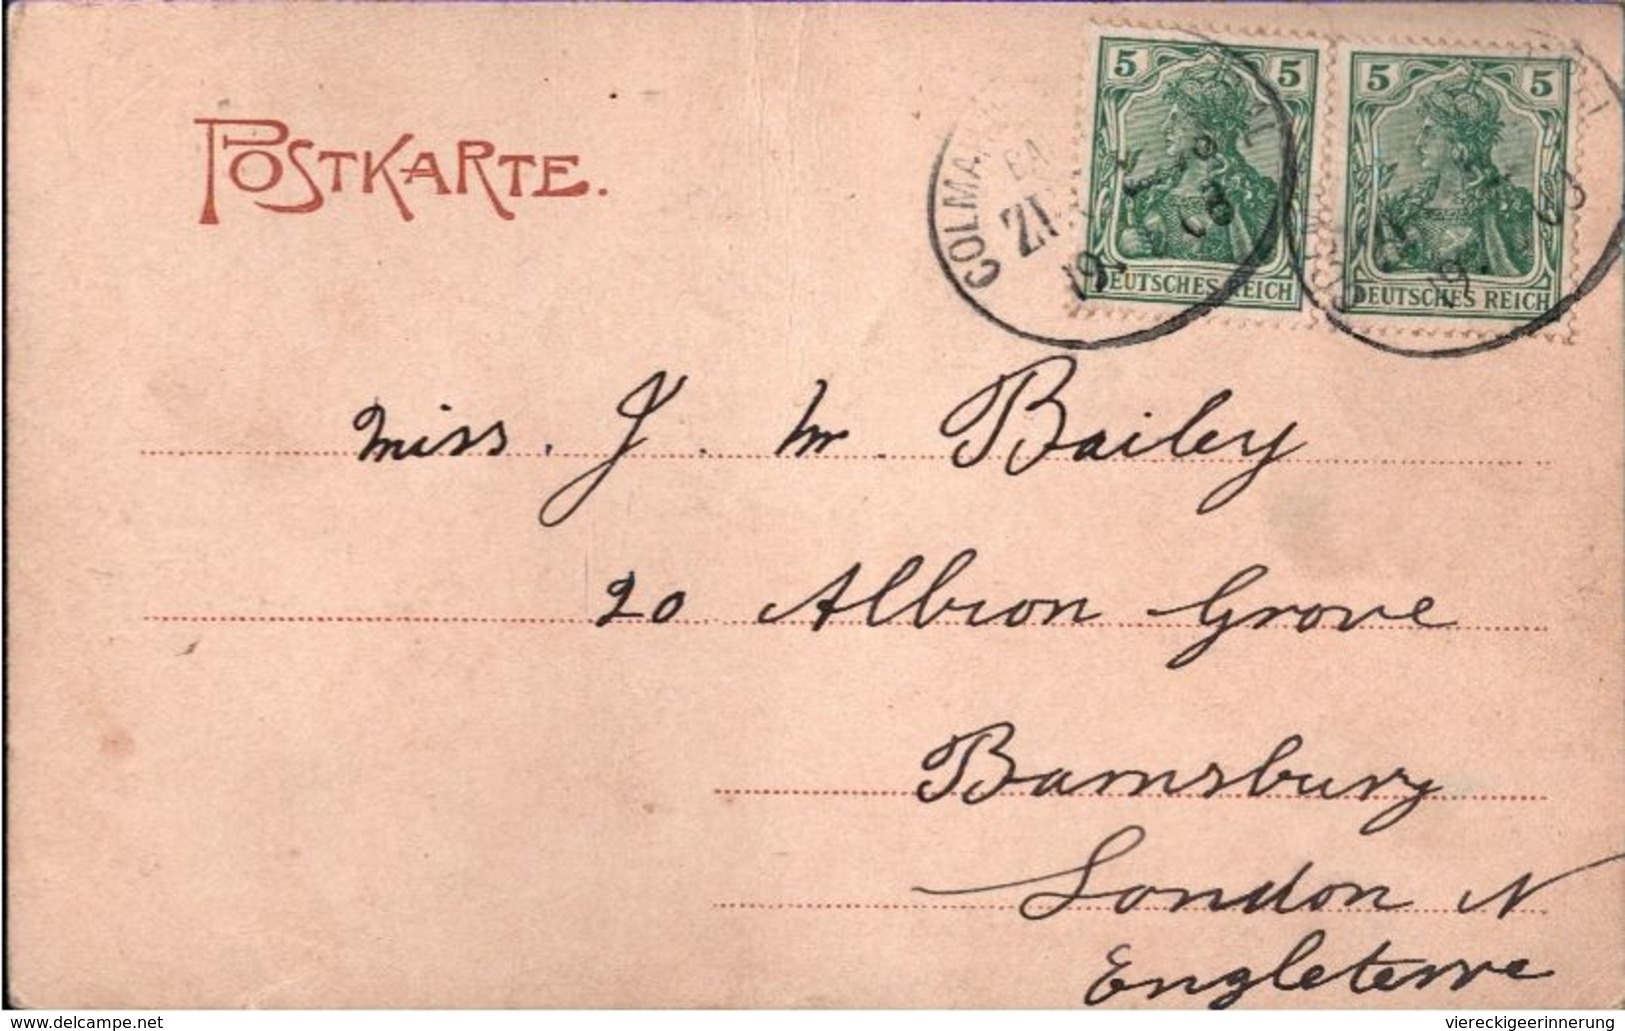 POSTKARTE.
5 5
DEUTSCHES REICH
5 5
DEUTSCHES REICH
COLMAR
ZUG
19 03
19 03
Miss. J. M. Bailey
20 Albion Grove
Barnsbury
London N
Engleterre
www.delcampe.net
viereckigeerinnerung